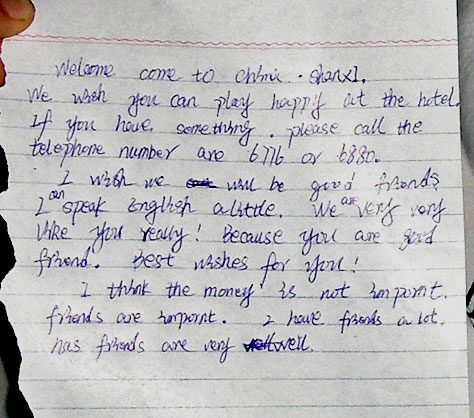 Welcome come to chinic . shanxi.
We wish you can play happy at the hotel.
If you have something . please call the
telephone number are 6776 or 6880.
I wish we will be good friends
I can speak English a little. We are very very
like you really! Because you are good
friend. Best wishes for you!
I think the money is not impornt.
friends are impornt. I have friends a lot.
has friends are very well.